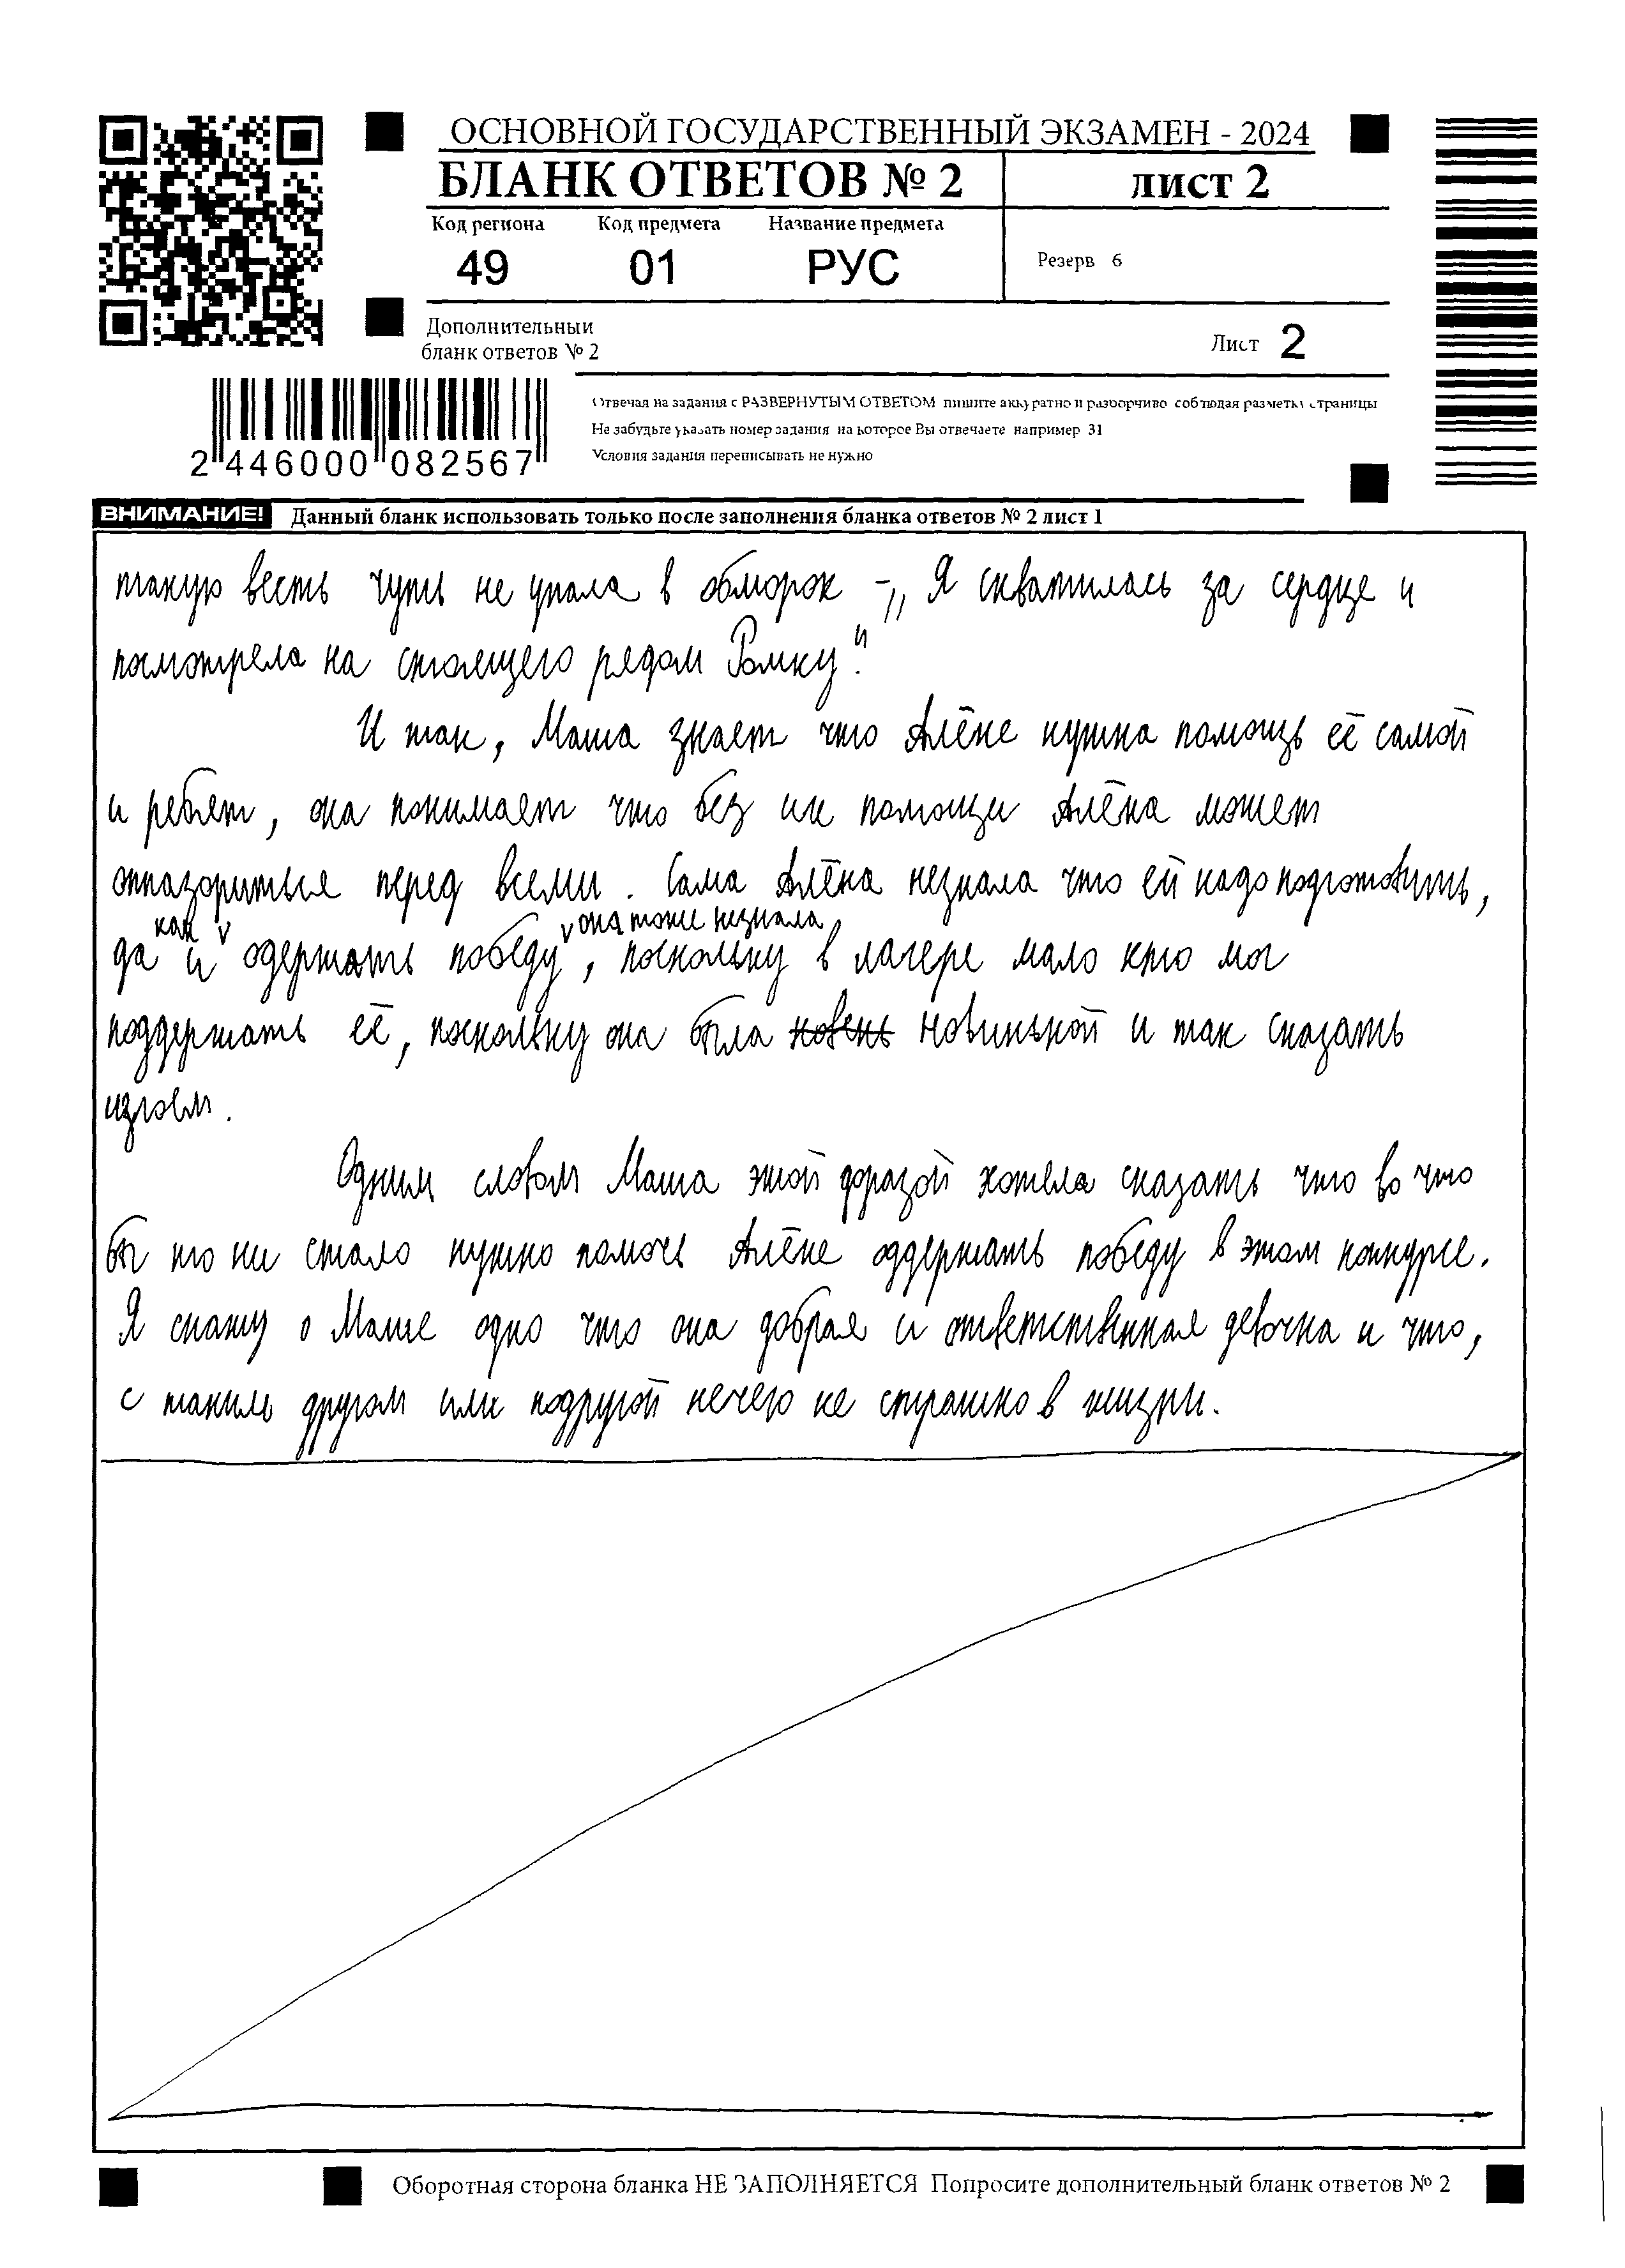 ОСНОВНОЙ ГОСУДАРСТВЕННЫЙ ЭКЗАМЕН - 2024
БЛАНК ОТВЕТОВ № 2
ЛИСТ 2
Код региона Код предмета Название предмета
49 01 РУС
Резерв 6
Дополнительный
бланк ответов № 2
Лист 2
Отвечая на задания с РАЗВЕРНУТЫМ ОТВЕТОМ пишите аккуратно и разборчиво соблюдая разметку страницы
Не забудьте указать номер задания на которое Вы отвечаете например 31
Условия задания переписывать не нужно
2 446000 082567
ВНИМАНИЕ! Данный бланк использовать только после заполнения бланка ответов № 2 лист 1
такую весть чуть не упала в обморок - „ Я схватилась за сердце и
посмотрела на стоящего рядом Ромку."
И так, Маша знает что Алёне нужна помощь её самой
и ребят, она понимает что без их помощи Алёна может
оппазориться перед всеми. Сама Алёна незнала что ей надо подготовить,
как она тоже незнала
да и одержать победу, поскольку в лагере мало кто мог
поддержать её, поскольку она была новень новинькой и так сказать
изгоем.
Одним словом Маша этой фразой хотела сказать что во что
бы то ни стало нужно помочь Алёне оддержать победу в этом конкурсе.
Я скажу о Маше одно что она добрая и ответственная девочка и что,
с таким другом или подругой нечего не страшно в жизни.
Оборотная сторона бланка НЕ ЗАПОЛНЯЕТСЯ Попросите дополнительный бланк ответов № 2